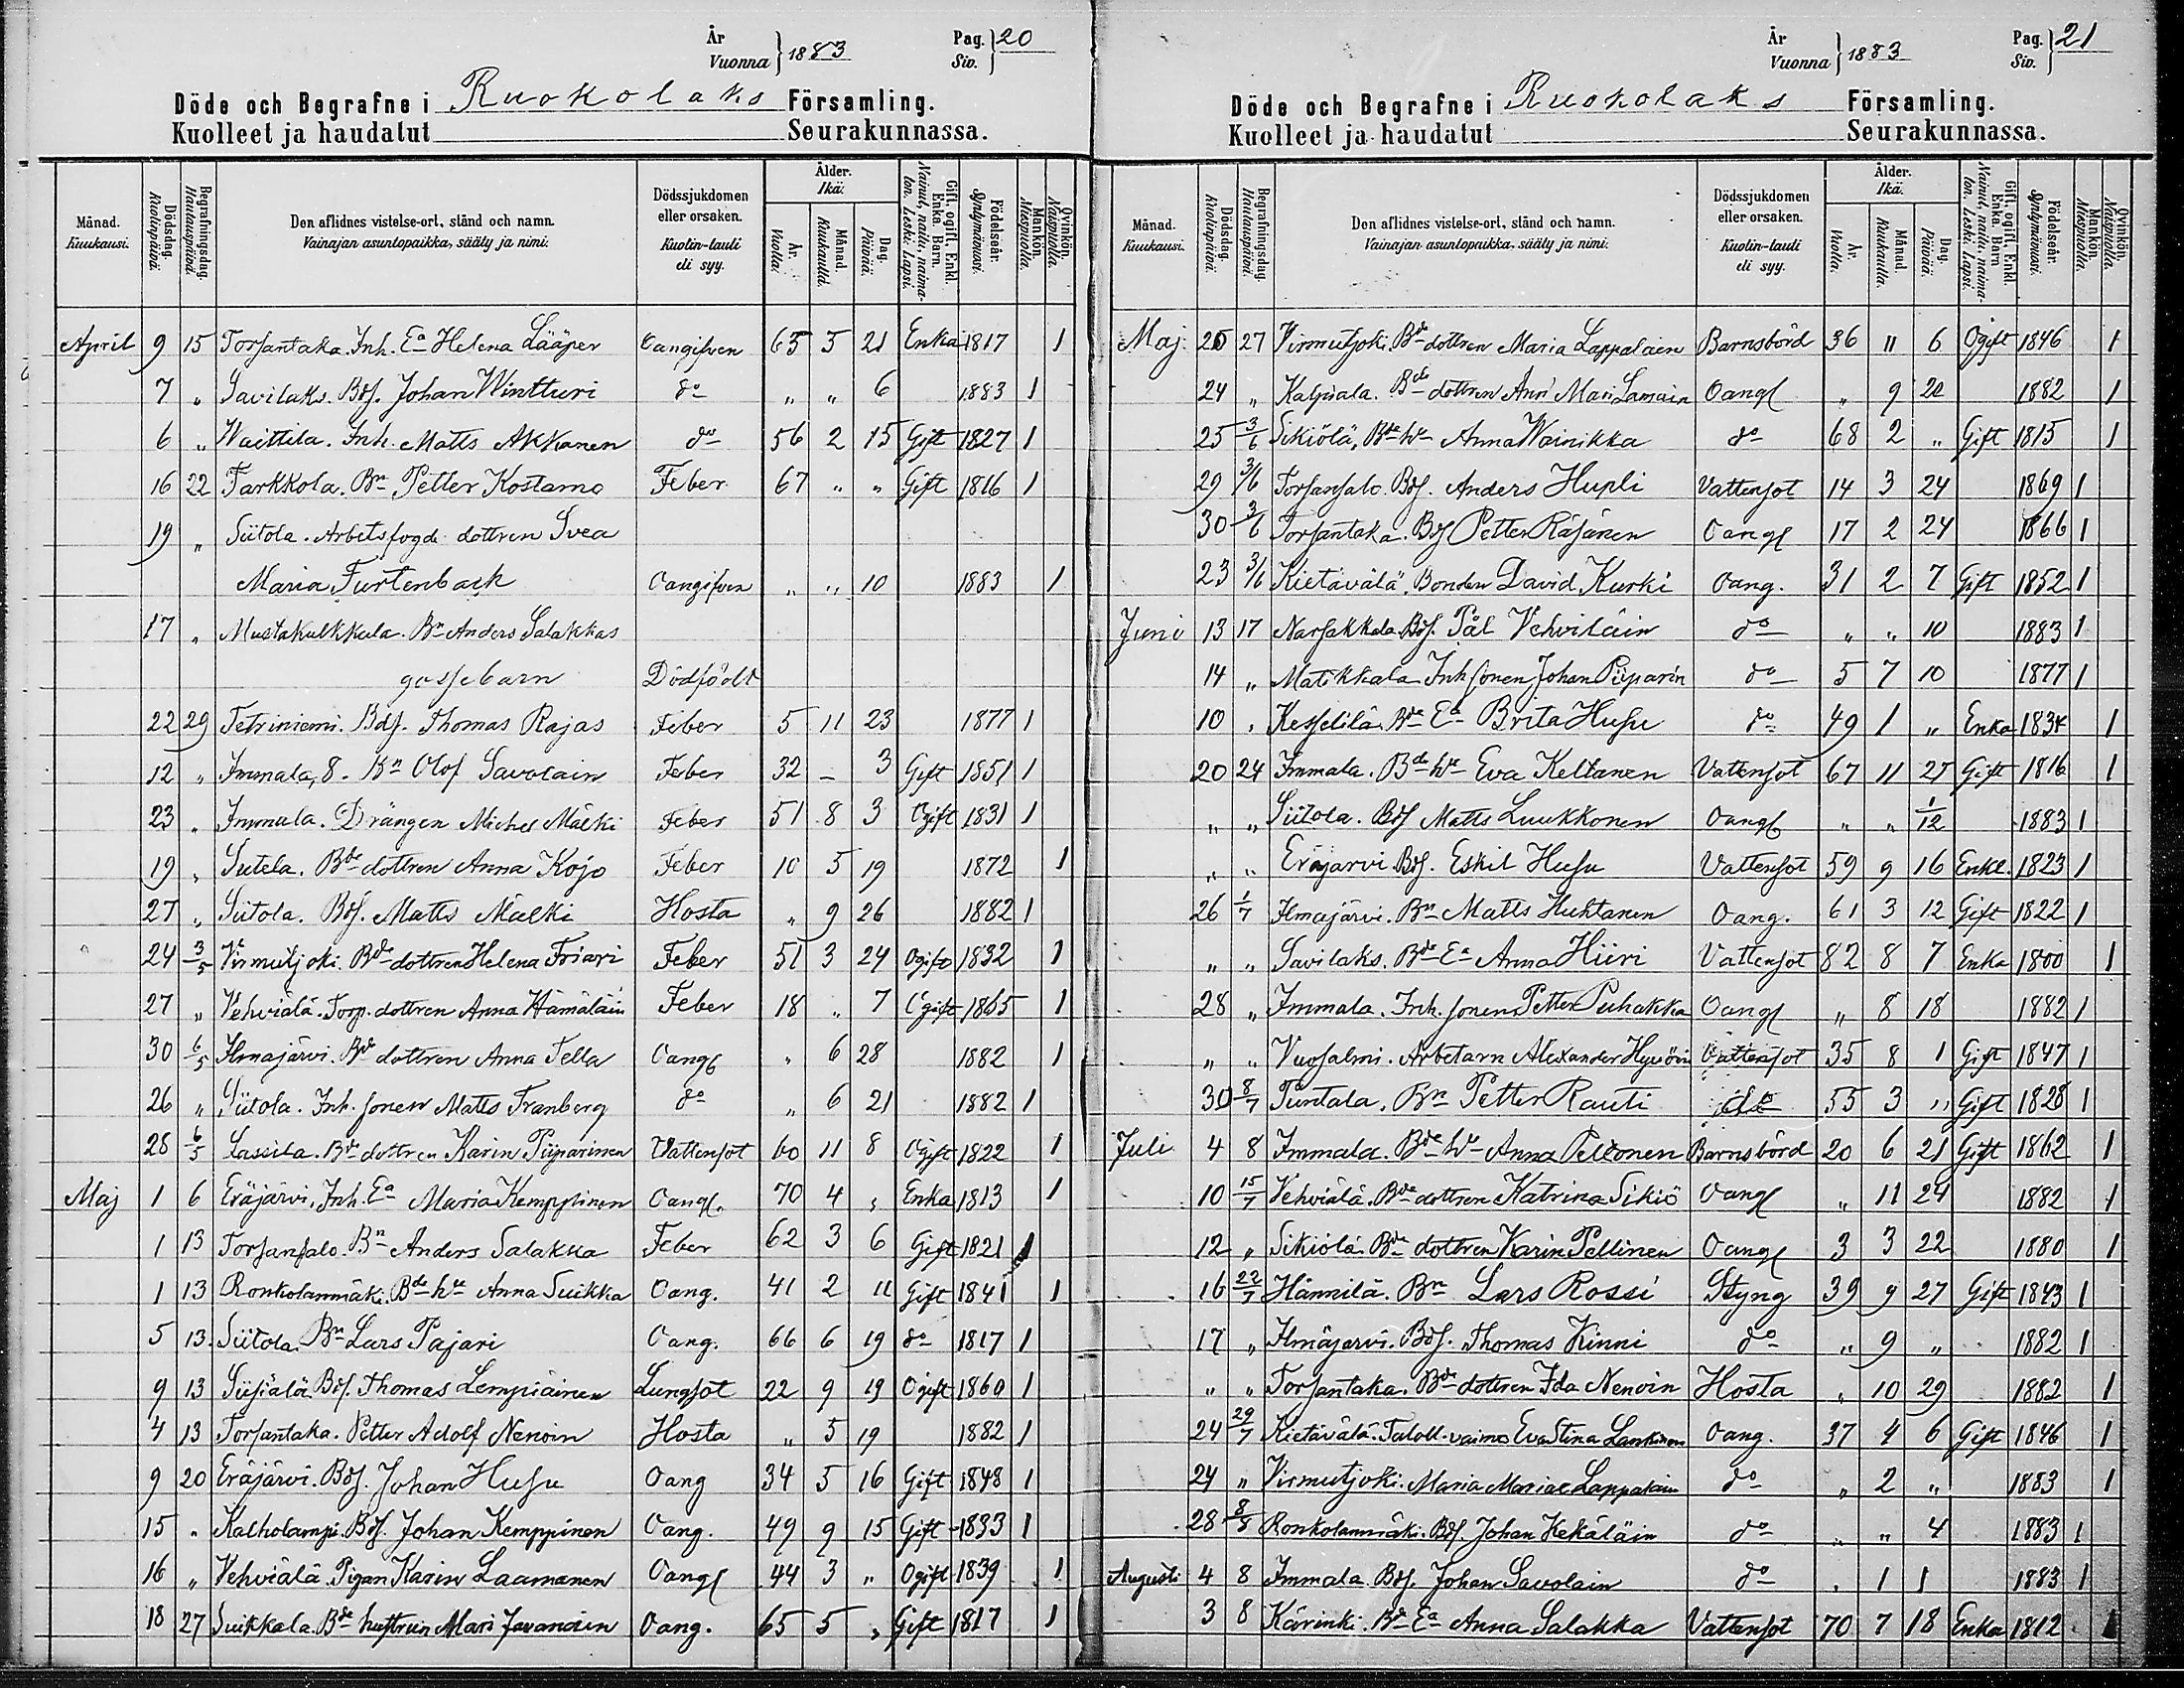 År
Vuonna } 1883
Pag.
Siv. } 20
Döde och Begrafne i Ruokolaks Församling.
Kuolleet ja haudatut Seurakunnassa.
Månad. Kuukausi. Dödsdag. Kuolinpäivä. Begrafningsdag. Hautauspäivä. Den aflidnes vistelse-ort, stånd och namn. Vainajan asuntopaikka, sääty ja nimi: Dödssjukdomen eller orsaken. Kuolin-tauti eli syy. Ålder. Ikä: År. Vuotta. Månad. Kuukautta. Dag. Päivää. Gift, ogift, Enkl. Enka. Barn. Nainut, naitu, naimaton. Leski. Lapsi. Födelseår. Syntymävuosi. Mankön. Miespuolia. Qvinkön. Naispuolia.
April 9 15 Torsantaka. Inh. Ea Helena Lääper Oangifven 65 5 21 Enka 1817 1
7 " Savilaks. Bds. Johan Wintturi do " " 6 1883 1
6 " Waittila. Inh. Matts Akkanen do 56 2 15 Gift 1827 1
16 22 Tarkkola. Bn Petter Kostamo Feber 67 " " Gift 1816 1
19 " Siitola. Arbetsfogde dottren Svea
Maria Furtenback Oangifven " " 10 1883 1
17 " Mustakulkkula. Bn Anders Salakkas
gossebarn Dödfödt
22 29 Tetriniemi. Bds. Thomas Rajas Feber 5 11 23 1877 1
12 " Immala, 8. Bn Olof Savolain Feber 32 - 3 Gift 1851 1
23 " Immala. Drängen Michel Mälki Feber 51 8 3 Ogift 1831 1
19 " Sutela. Bde dottren Anna Kojo Feber 10 5 19 1872 1
27 " Siitola. Bds. Matts Mälki Hosta " 9 26 1882 1
24 3/5 Virmutjoki. Bde dottren Helena Friari Feber 51 3 24 Ogift 1832 1
27 " Vehviälä. Torp. dottren Anna Hämäläin Feber 18 " 7 Ogift 1865 1
30 6/5 Ilmajärvi. Bde dottren Anna Tella Oangf " 6 28 1882 1
26 " Siitola. Inh. sonen Matts Franberg do " 6 21 1882 1
28 6/5 Lassila. Bde dottren Karin Piiparinen Vattensot 60 11 8 Ogift 1822 1
Maj 1 6 Eräjärvi. Inh. Ea Maria Kemppinen Oangf. 70 4 " Enka 1813 1
1 13 Torsansalo. Bn Anders Salakka Feber 62 3 6 Gift 1821 1
1 13 Ronkolanmäki. Bde hu Anna Suikka Oang. 41 2 11 Gift 1841 1
5 13. Siitola. Bn Lars Pajari Oang. 66 6 19 do 1817 1
9 13 Siisiälä Bds. Thomas Lempiäinen Lungsot 22 9 19 Ogift 1860 1
4 13 Torsantaka. Petter Adolf Nenoin Hosta " 5 19 1882 1
9 20 Eräjärvi. Bds. Johan Husu Oang 34 5 16 Gift 1848 1
15 " Kalholampi. Bds. Johan Kemppinen Oang. 49 9 15 Gift 1833 1
16 " Vehviälä Pigan Karin Laamanen Oangf 44 3 " Ogift 1839 1
18 27 Suikkala. Bde hustrun Mari Javanäin Oang. 65 5 " Gift 1817 1
År
Vuonna } 1883
Pag.
Siv. } 21
Döde och Begrafne i Ruokolaks Församling.
Kuolleet ja haudatut Seurakunnassa.
Månad. Kuukausi. Dödsdag. Kuolinpäivä. Begrafningsdag. Hautauspäivä. Den aflidnes vistelse-ort, stånd och namn. Vainajan asuntopaikka, sääty ja nimi: Dödssjukdomen eller orsaken. Kuolin-tauti eli syy. Ålder. Ikä. År. Vuotta. Månad. Kuukautta. Dag. Päivää. Gift, ogift, Enkl. Enka. Barn Nainut, naitu, naimaton. Leski. Lapsi. Födelseår. Syntymävuosi. Mankön. Miespuolia. Qvinkön. Naispuolia.
Maj. 27 Virmutjoki. Bde dottren Maria Lappalain Barnsbörd 36 " 6 Ogift 1846 1
24 " Kalpiala. Bde dottren Ann Mari Lamain Oangf " 9 20 1882 1
25 3/6 Sikiölä, Bde hu Anna Wainikka do 68 2 " Gift 1815 1
29 3/6 Torsansalo. Bds. Anders Hupli Vattensot 14 3 24 1869 1
30 3/6 Torsantaka. Bds Petter Räsänen Oangf 17 2 24 1866 1
23 3/6 Kietävälä. Bonden David Kurki Oang. 31 2 7 Gift 1852 1
Juni 13 17 Narsakkala Bds. Pål Vehviläin do " " 10 1883 1
14 " Matikkala Inh sonen Johan Piiparin do 5 7 10 1877 1
10 " Kesselilä. Bde Ea Brita Husu do 49 1 " Enka 1834 1
20 24 Immala. Bde hu Eva Keltanen Vattensot 67 11 25 Gift 1816 1
" " Siitola. Bds Matts Luukkonen Oangf " " 1/12 1883 1
" " Eräjärvi Bds. Eskil Husu Vattensot 59 9 16 Enkl. 1823 1
26 1/7 Ilmajärvi. Bn Matts Huhtanen Oang. 61 3 12 Gift 1822 1
" " Savilaks. Bde Ea Anna Hiiri Vattensot 82 8 7 Enka 1800 1
28 " Immala. Inh. sonen Petter Puhakka Oangf " 8 18 1882 1
" " Vuosalmi. Arbetarn Alexander Hyvöin Vattensot 35 8 1 Gift 1847 1
30 8/7 Puntala. Bn Petter Rauti do 55 3 " Gift 1828 1
Juli 4 8 Immala. Bde hu Anna Peltonen Barnsbörd 20 6 21 Gift 1862 1
10 15/7 Vehviälä. Bde dottren Katrina Sikiö Oangf " 11 24 1882 1
12 " Sikiölä. Bde dottren Karin Pellinen Oangf 3 3 22 1880 1
16 22/7 Hännilä. Bn Lars Rossi Styng 39 9 27 Gift 1843 1
17 " Ilmäjärvi. Bds. Thomas Kinni do " 9 " 1882 1
" " Torsantaka. Bde dottren Ida Nenoin Hosta " 10 29 1882 1
24 29/7 Kietävälä. Taloll. vaimo Eva Stina Lankinen Oang. 37 4 6 Gift 1846 1
24 " Virmutjoki. Maria Mariae Lappalain do " 2 " 1883 1
28 8/8 Ronkolanmäki. Bds. Johan Kekäläin do " " 4 1883 1
Augusti 4 8 Immala. Bds. Johan Savolain do " 1 1 1883 1
3 8 Kärinki. Bde Ea Anna Salakka Vattensot 70 7 18 Enka 1812 1